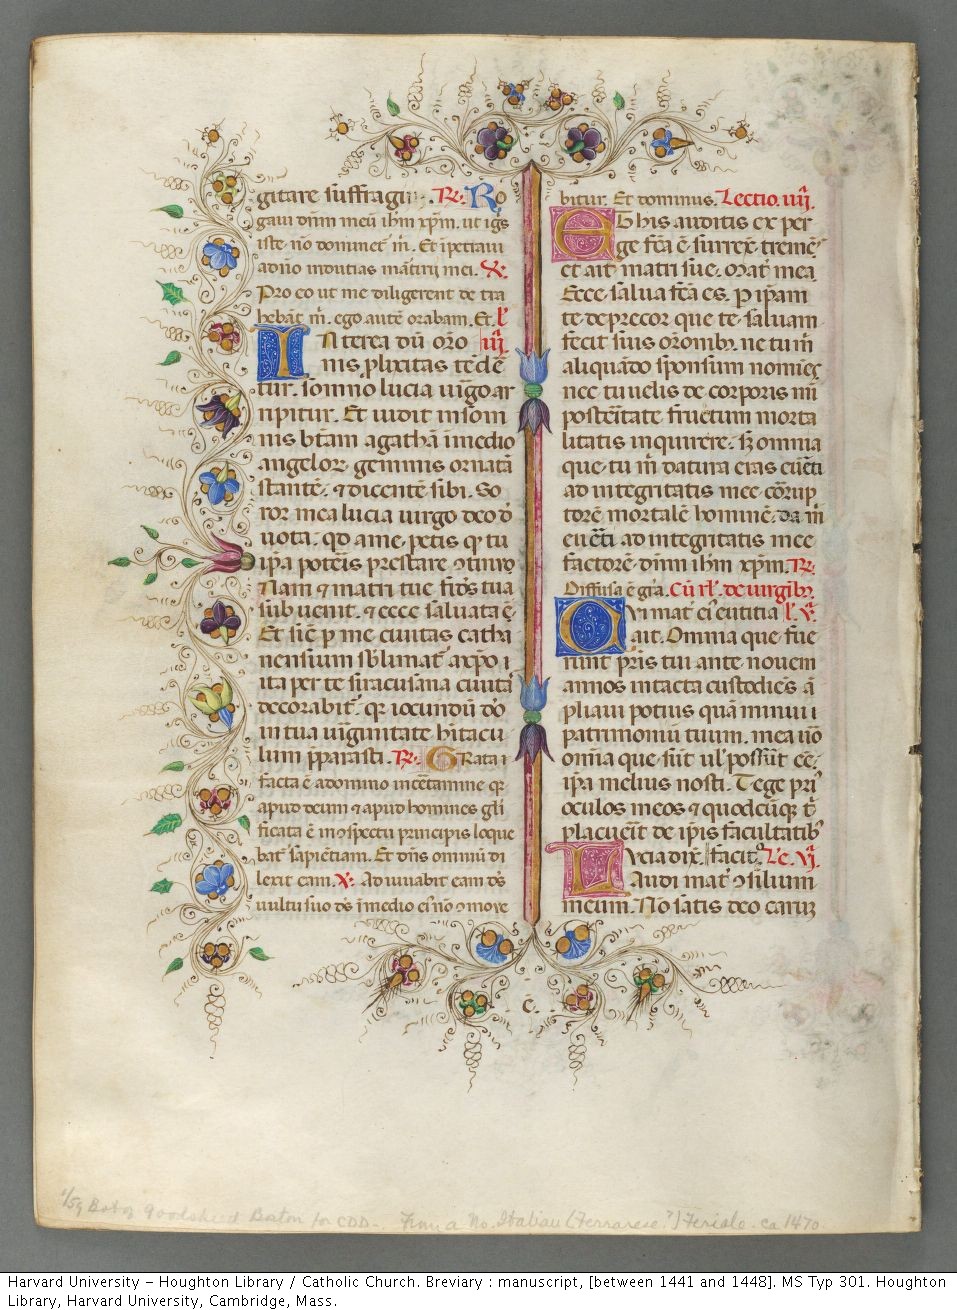 gitare suffragii. R. Ro
gaui dnm meu ihm xpm. ut igs
iste no dominet m. Et ipetraui
a dño indutias martirij mei. V.
Pro eo ut me diligerent de tra
hebat m. ego aute orabam. Et. l
INterea du oro iiij
nis plixitas tede
tur. somno lucia uirgo ar
ripitur. Et uidit in som
nis btam agatha i medio
angelor. gemmis ornata
stante. ⁊ dicente sibi. So
ror mea lucia uirgo deo d
uota. qd a me petis qr tu
ipa poteris prestare ɔtinuo
Nam ⁊ matri tue fides tua
subuenit. ⁊ ecce saluata e.
Et sic p me ciuitas catha
nensium sblimat a xpo i
ita per te siracusana ciuita
decorabit. qr iocundu do
in tua uirginitate hitacu
lum pparasti. R. GRata i
facta e a domino in certamine qr
apud deum ⁊ apud homines glı
ficata e in ɔspectu principis loque
bat sapientiam. Et dns omniu di
lexit eam. V. Adiuuabit eam ds
uultu suo ds i medio ei no ɔmoue
bitur. Et dominus. Lectio. iiij.
EX his auditis ex per
ge fca e surrex. treme
et ait matri sue. orat mea
Ecce salua fca es. P ipam
te deprecor que te saluam
fecit suis oronib. ne tu m
aliquado sponsum nomies
nec tu uelis de corporis mi
posteritate fructum morta
litatis inquirere. sz omnia
que tu m datura eras eueti
ad integritatis mee corrup
tore mortale homine. da m
eueti ad integritatis mee
factore dnm ihm xpm. R.
Diffusa e gra. Cu rl. de uirgib.
CUi mat ei eutitia l. V.
ait. Omnia que fue
runt pris tui ante nouem
annos intacta custodies a
pliaui potius qua minui i
patrimoniu tuum. mea uo
omia que sut ul possut ee.
ipa melius nosti. Tege pri
oculos meos ⁊ quodcuqz t
placuerit de ipis facultatib
LUcia dix. facito Lc. VI.
Audi mat ɔsilium
meum. No satis deo carus
c.
Boston for CDD - From a No. Italian (Ferrarese?) Feriale. ca 1470.
Harvard University – Houghton Library / Catholic Church. Breviary : manuscript, [between 1441 and 1448]. MS Typ 301. Houghton
Library, Harvard University, Cambridge, Mass.